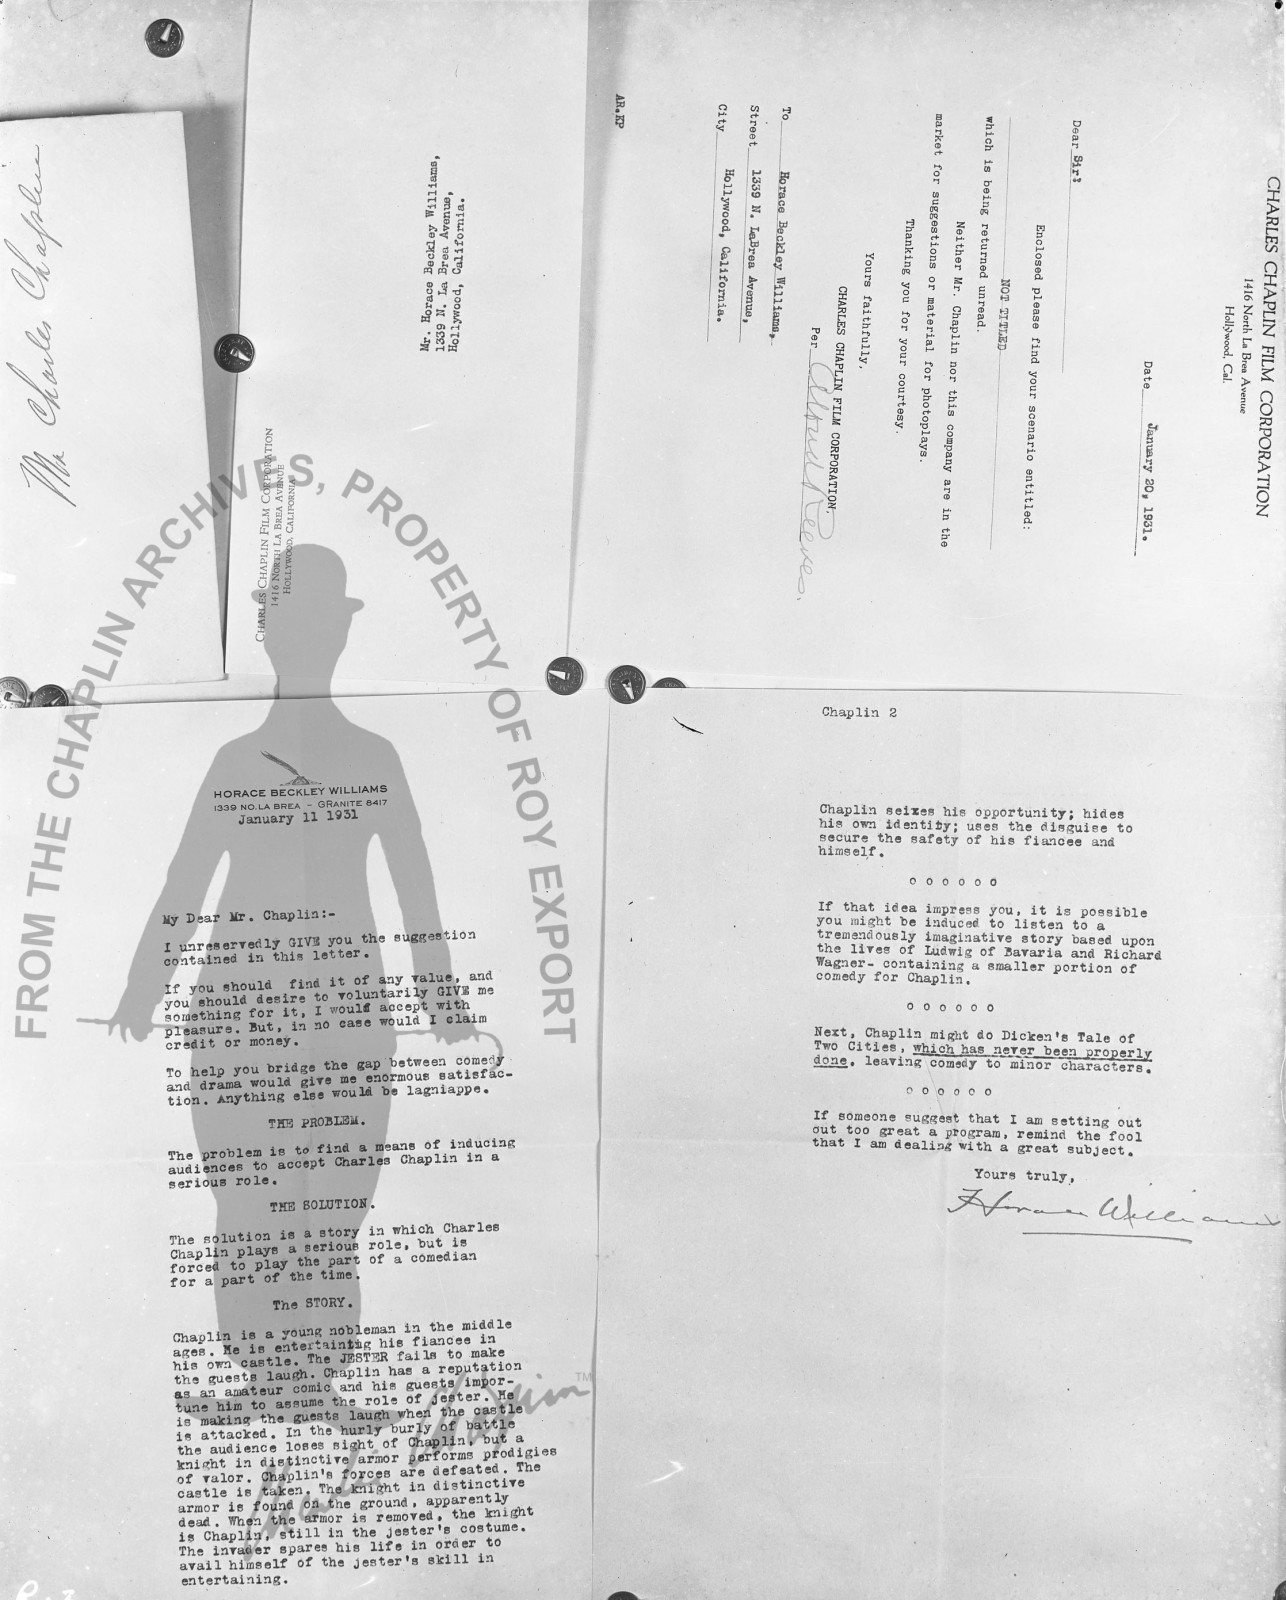 Mr Charles Chaplin
Mr. Horace Beckley Williams,
1339 N. La Brea Avenue,
Hollywood, California.
CHARLES CHAPLIN FILM CORPORATION
1416 NORTH LA BREA AVENUE
HOLLYWOOD, CALIFORNIA
CHARLES CHAPLIN FILM CORPORATION
1416 North La Brea Avenue
Hollywood, Cal.
Date January 20, 1931.
Dear Sir:
Enclosed please find your scenario entitled:
NOT TITLED
which is being returned unread.
Neither Mr. Chaplin nor this company are in the
market for suggestions or material for photoplays.
Thanking you for your courtesy.
Yours faithfully,
CHARLES CHAPLIN FILM CORPORATION,
Per Alfred Reeves.
To Horace Beckley Williams,
Street 1339 N. LaBrea Avenue,
City Hollywood, California.
AR.EP
HORACE BECKLEY WILLIAMS
1339 NO. LA BREA - GRANITE 8417
January 11 1931
My Dear Mr. Chaplin:-
I unreservedly GIVE you the suggestion
contained in this letter.
If you should find it of any value, and
you should desire to voluntarily GIVE me
something for it, I would accept with
pleasure. But, in no case would I claim
credit or money.
To help you bridge the gap between comedy
and drama would give me enormous satisfac-
tion. Anything else would be lagniappe.
THE PROBLEM.
The problem is to find a means of inducing
audiences to accept Charles Chaplin in a
serious role.
THE SOLUTION.
The solution is a story in which Charles
Chaplin plays a serious role, but is
forced to play the part of a comedian
for a part of the time.
The STORY.
Chaplin is a young nobleman in the middle
ages. He is entertainting his fiancee in
his own castle. The JESTER fails to make
the guests laugh. Chaplin has a reputation
as an amateur comic and his guests impor-
tune him to assume the role of jester. He
is making the guests laugh when the castle
is attacked. In the hurly burly of battle
the audience loses sight of Chaplin, but a
knight in distinctive armor performs prodigies
of valor. Chaplin's forces are defeated. The
castle is taken. The knight in distinctive
armor is found on the ground, apparently
dead. When the armor is removed, the knight
is Chaplin, still in the jester's costume.
The invader spares his life in order to
avail himself of the jester's skill in
entertaining.
Chaplin 2
Chaplin seizes his opportunity; hides
his own identity; uses the disguise to
secure the safety of his fiancee and
himself.
o o o o o o
If that idea impress you, it is possible
you might be induced to listen to a
tremendously imaginative story based upon
the lives of Ludwig of Bavaria and Richard
Wagner- containing a smaller portion of
comedy for Chaplin.
o o o o o o
Next, Chaplin might do Dicken's Tale of
Two Cities, which has never been properly
done, leaving comedy to minor characters.
o o o o o o
If someone suggest that I am setting out
out too great a program, remind the fool
that I am dealing with a great subject.
Yours truly,
Horace Williams
FROM THE CHAPLIN ARCHIVES, PROPERTY OF ROY EXPORT
Charlie Chaplin TM